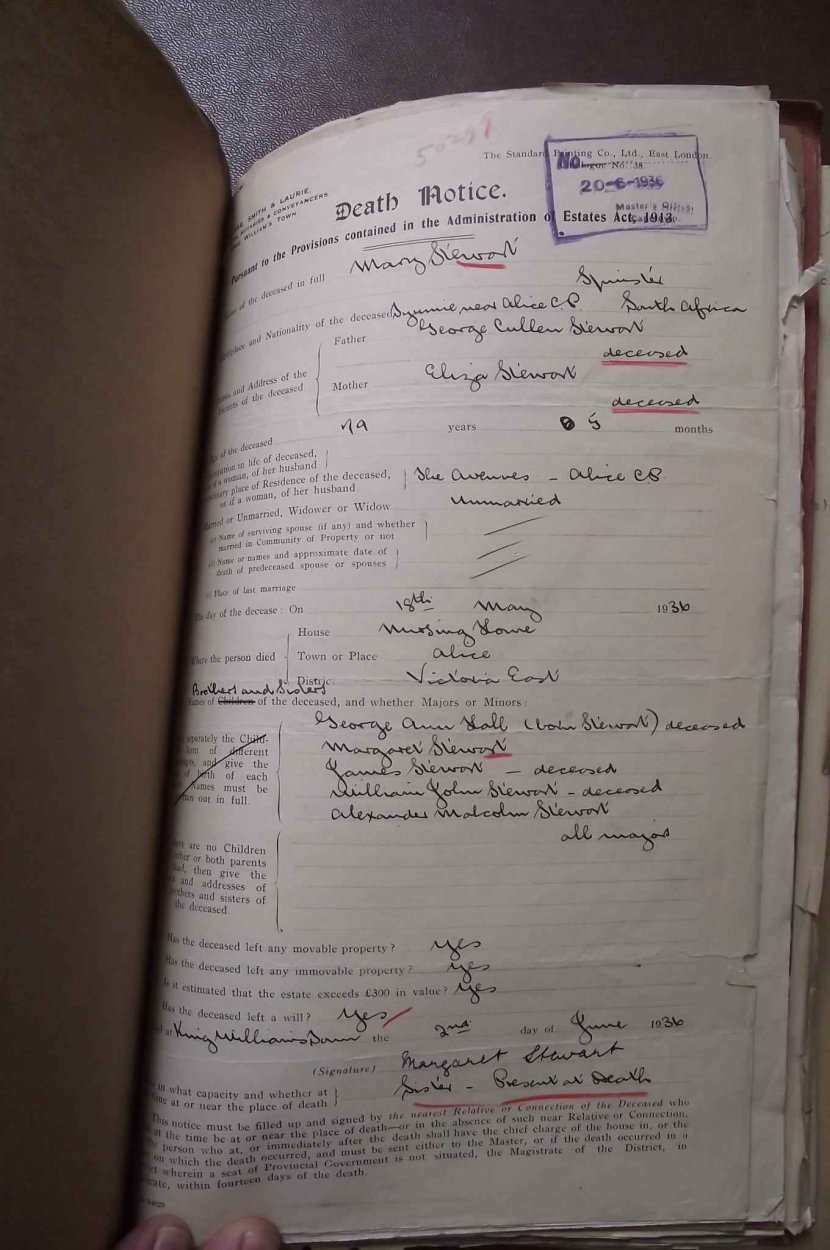 50299
The Standard Printing Co., Ltd., East London.
No. 38
20-6-1936
Master's Office,
SMITH & LAURIE,
NOTARIES & CONVEYANCERS,
WILLIAM'S TOWN.
Death Notice.
Pursuant to the Provisions contained in the Administration of Estates Act, 1913.
of the deceased in full Mary Stewart
Spinster
and Nationality of the deceased near Alice C.P. South Africa
Father George Cullen Stewart
deceased
and Address of the Parents of the deceased.
Mother Eliza Stewart
deceased
of the deceased 79 years 5 months
in life of deceased, if a woman, of her husband
place of Residence of the deceased, or if a woman, of her husband The Avenues - Alice C.P.
or Unmarried, Widower or Widow Unmarried
Name of surviving spouse (if any) and whether married in Community of Property or not
Name or names and approximate date of death of predeceased spouse or spouses
Place of last marriage
The day of the decease: On 18th May 1936
House Nursing Home
Where the person died Town or Place Alice
District Victoria East
Brothers and Sisters
Names of Children of the deceased, and whether Majors or Minors:
George Ann Hall (born Stewart) deceased
Margaret Stewart
James Stewart - deceased
William John Stewart - deceased
Alexander Malcolm Stewart
all major
separately the Child-
of different
and give the
of birth of each
Names must be
out in full.
are no Children
or both parents
then give the
and addresses of
brothers and sisters of
the deceased.
Has the deceased left any movable property? Yes
Has the deceased left any immovable property? Yes
Is it estimated that the estate exceeds £300 in value? Yes
Has the deceased left a will? Yes
at King Williams Town the 2nd day of June 1936
(Signature) Margaret Stewart
in what capacity and whether at
at or near the place of death Sister - Present at Death
This notice must be filled up and signed by the nearest Relative or Connection of the Deceased who
at the time be at or near the place of death—or in the absence of such near Relative or Connection,
person who at, or immediately after the death shall have the chief charge of the house in, or the
on which the death occurred, and must be sent either to the Master, or if the death occurred in a
wherein a seat of Provincial Government is not situated, the Magistrate of the District, in
within fourteen days of the death.